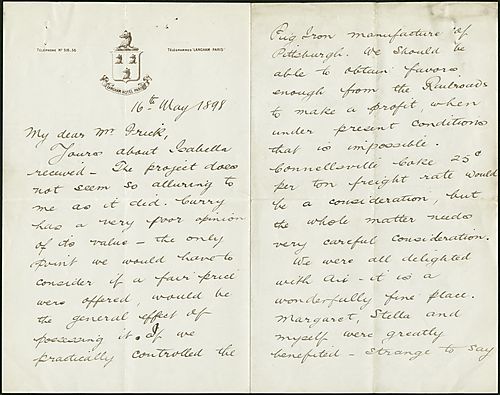 TÉLÉPHONE Nº 516.56
TÉLÉGRAMMES "LANGHAM PARIS"
LANGHAM HOTEL PARIS
16th May 1898
My dear Mr Frick,
Yours about Isabella
received - The project does
not seem so alluring to
me as it did. Curry
has a very poor opinion
of its value - the only
point we would have to
consider if a fair price
were offered, would be
the general effect of
possessing it. If we
practically controlled the
Pig Iron manufacture of
Pittsburgh. We should be
able to obtain favors
enough from the Railroads
to make a profit, when
under present conditions
that is impossible.
Connellsville Coke 25c
per ton freight rate would
be a consideration, but
the whole matter needs
very careful consideration.
We were all delighted
with Aix - it is a
wonderfully fine place.
Margaret, Stella and
myself were greatly
benefited - strange to say